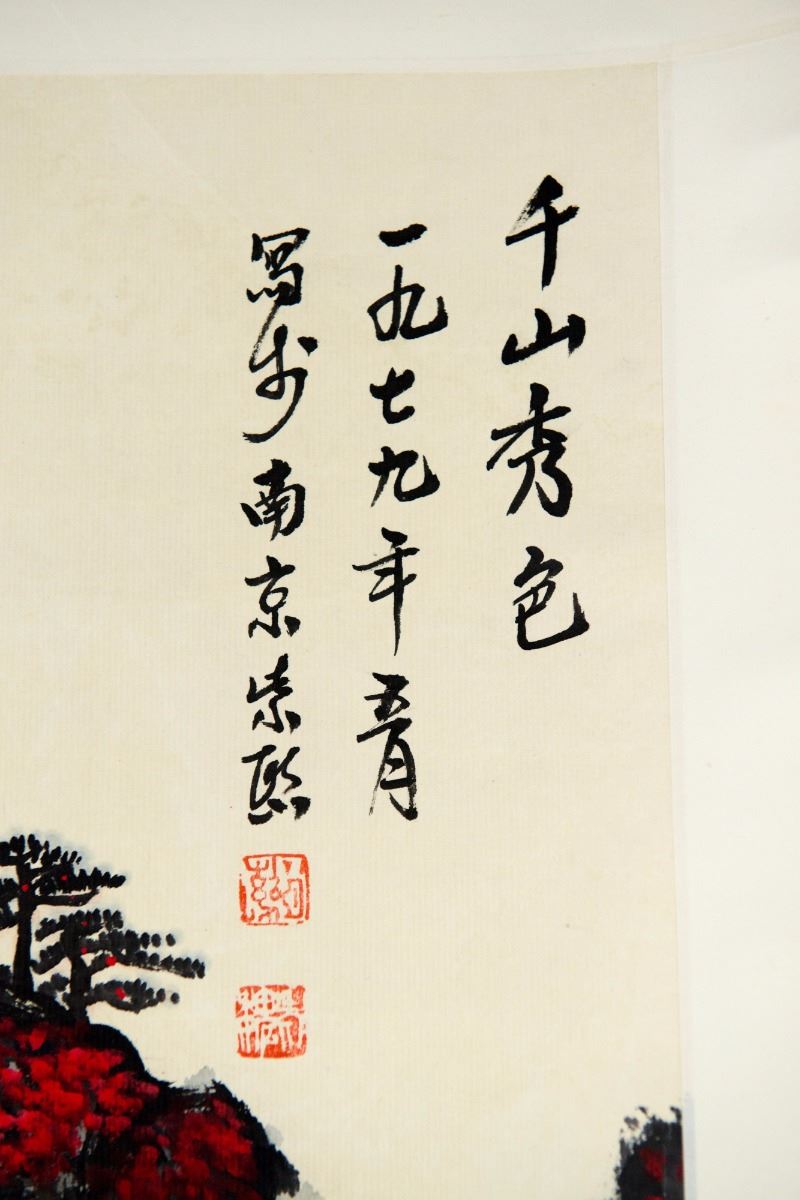 千山秀色
一九七九年五月
寫於南京紫熙